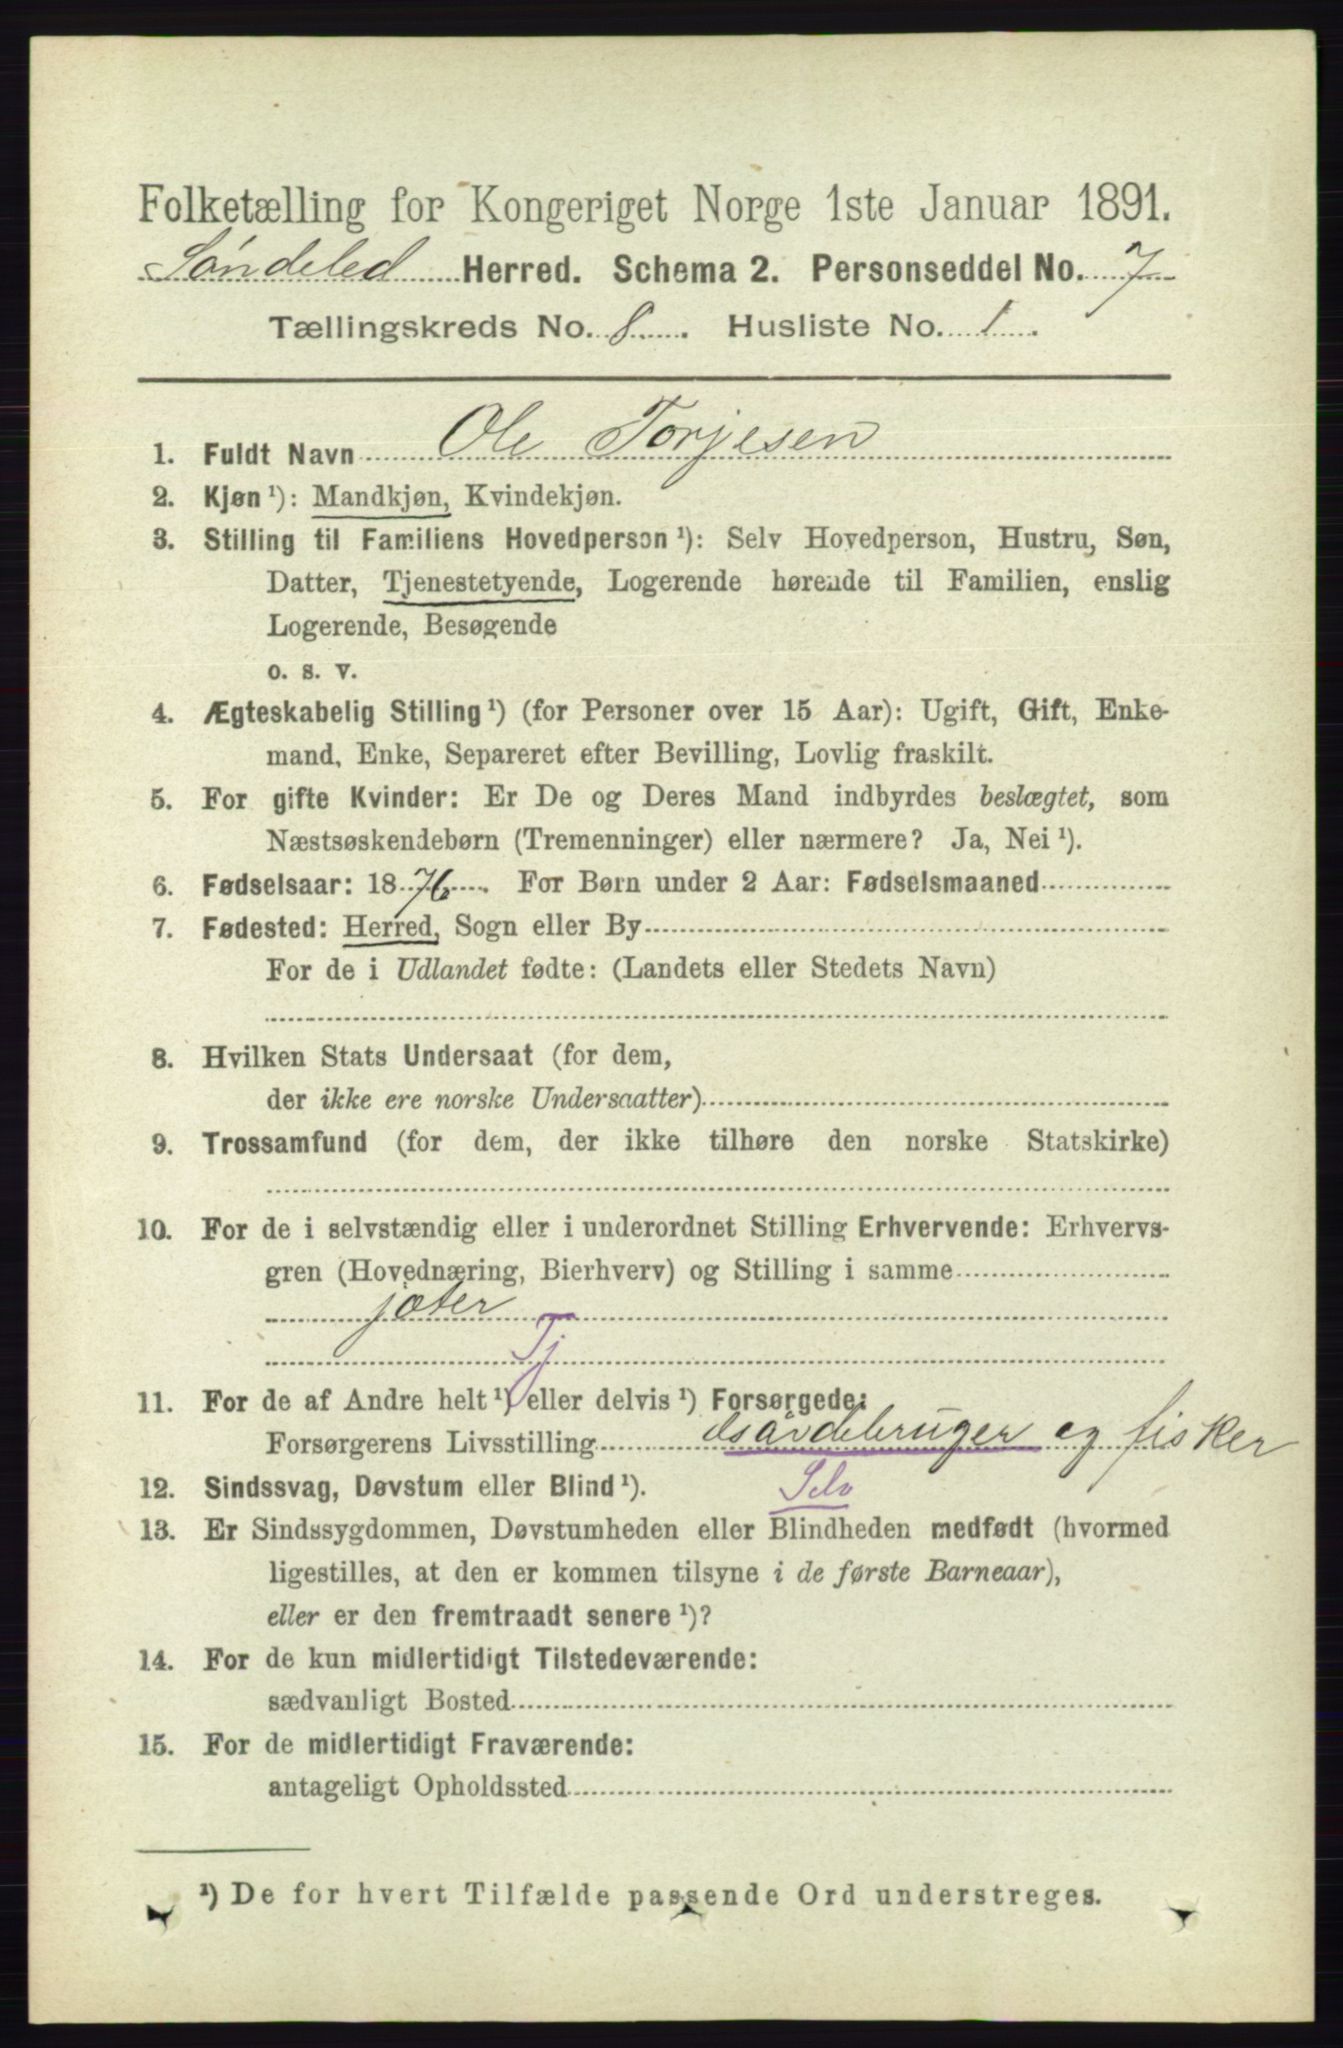 Folketælling for Kongeriget Norge 1ste Januar 1891.
Søndeled Herred. Schema 2. Personseddel No. 7
Tællingskreds No. 8. Husliste No. 1.
1. Fuldt Navn Ole Torjesen
2. Kjøn ¹): Mandkjøn, Kvindekjøn.
3. Stilling til Familiens Hovedperson ¹): Selv Hovedperson, Hustru, Søn,
Datter, Tjenestetyende, Logerende hørende til Familien, enslig
Logerende, Besøgende
o. s. v.
4. Ægteskabelig Stilling ¹) (for Personer over 15 Aar): Ugift, Gift, Enke-
mand, Enke, Separeret efter Bevilling, Lovlig fraskilt.
5. For gifte Kvinder: Er De og Deres Mand indbyrdes beslægtet, som
Næstsøskendebørn (Tremenninger) eller nærmere? Ja, Nei ¹).
6. Fødselsaar: 1876. For Børn under 2 Aar: Fødselsmaaned
7. Fødested: Herred, Sogn eller By
For de i Udlandet fødte: (Landets eller Stedets Navn)
8. Hvilken Stats Undersaat (for dem,
der ikke ere norske Undersaatter)
9. Trossamfund (for dem, der ikke tilhøre den norske Statskirke)
10. For de i selvstændig eller i underordnet Stilling Erhvervende: Erhvervs-
gren (Hovednæring, Bierhverv) og Stilling i samme
jæter
Tj
11. For de af Andre helt ¹) eller delvis ¹) Forsørgede:
Forsørgerens Livsstilling og fisker
12. Sindssvag, Døvstum eller Blind ¹). Selv
13. Er Sindssygdommen, Døvstumheden eller Blindheden medfødt (hvormed
ligestilles, at den er kommen tilsyne i de første Barneaar),
eller er den fremtraadt senere ¹)?
14. For de kun midlertidigt Tilstedeværende:
sædvanligt Bosted
15. For de midlertidigt Fraværende:
antageligt Opholdssted
¹) De for hvert Tilfælde passende Ord understreges.